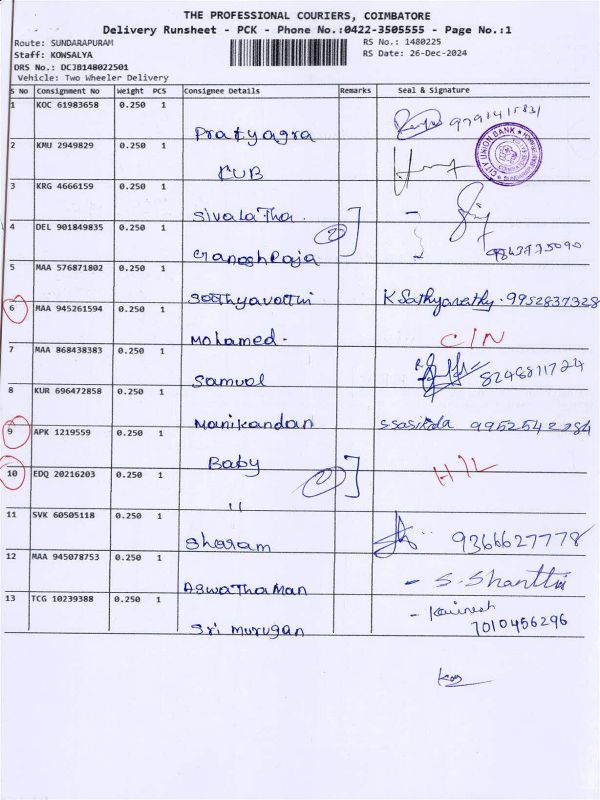 THE PROFESSIONAL COURIERS, COIMBATORE
Delivery Runsheet - PCK - Phone No.:0422-3505555 - Page No.:1
Route: SUNDARAPURAM RS No.: 1480225
Staff: KOWSALYA RS Date: 26-Dec-2024
DRS No.: DCJB148022501
Vehicle: Two Wheeler Delivery
S No Consignment No Weight PCS Consignee Details Remarks Seal & Signature
1 KOC 61983658 0.250 1
Pratyagra 9791415831
2 KMU 2949829 0.250 1
CUB CITY UNION BANK
3 KRG 4666159 0.250 1
SivalaTha.
4 DEL 901849835 0.250 1
GaneshRaja 2 9843775090
5 MAA 576871802 0.250 1
Sathyavathi K Sathyavathy. 9952837328
6 MAA 945261594 0.250 1
Mohamed. C/N
7 MAA 868438383 0.250 1
Samuel 8248811724
8 KUR 696472858 0.250 1
Manikandan S Sasikala 9952542284
9 APK 1219559 0.250 1
Baby
10 EDQ 20216203 0.250 1 H/L
" 2
11 SVK 60505118 0.250 1
Sharam 9366627778
12 MAA 945078753 0.250 1
AswaThaMan - S. Shanthi
13 TCG 10239388 0.250 1
Sri Murugan 7010456296